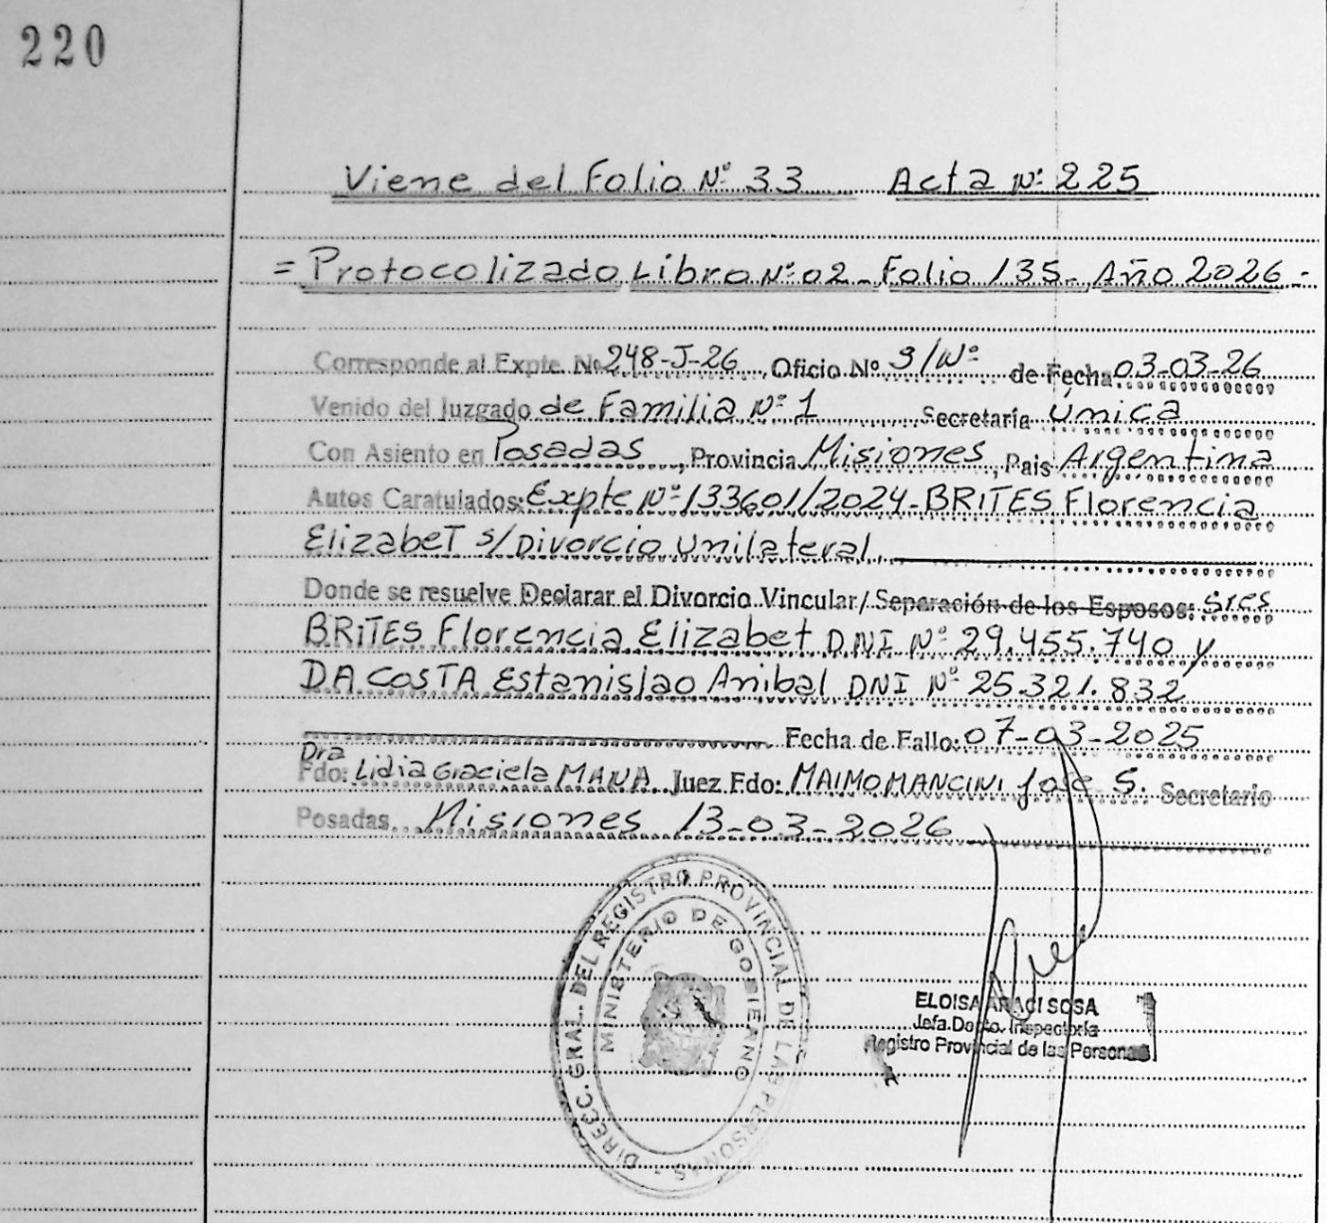 220
Viene del Folio Nº 33 Acta Nº 225
= Protocolizado Libro Nº 02 - Folio 135 - Año 2026 -
Corresponde al Expte. Nº 248-J-26, Oficio Nº S/Nº de Fecha 03-03-26
Venido del Juzgado de Familia Nº 1 Secretaría Única
Con Asiento en Posadas, Provincia Misiones, Pais Argentina
Autos Caratulados: Expte Nº 133601/2024 - BRITES Florencia
ElizabeT s/Divorcio Unilateral.
Donde se resuelve Declarar el Divorcio Vincular/ Separación de los Esposos: Sres
BRITES Florencia Elizabet DNI Nº 29.455.740 y
DA COSTA Estanislao Anibal DNI Nº 25.321.832
Fecha de Fallo: 07-03-2025
Dra
Fdo: Lidia Graciela Juez Fdo: MAIMO MANCINI José S. Secretario
Posadas, Misiones 13-03-2026
DIRECC. GRAL. DEL REGISTRO PROVINCIAL DE LAS PERSONAS -
MINISTERIO DE GOBIERNO
ELOISA ARACI SOSA
Jefa Dpto. Inspectoría
Registro Provincial de las Personas